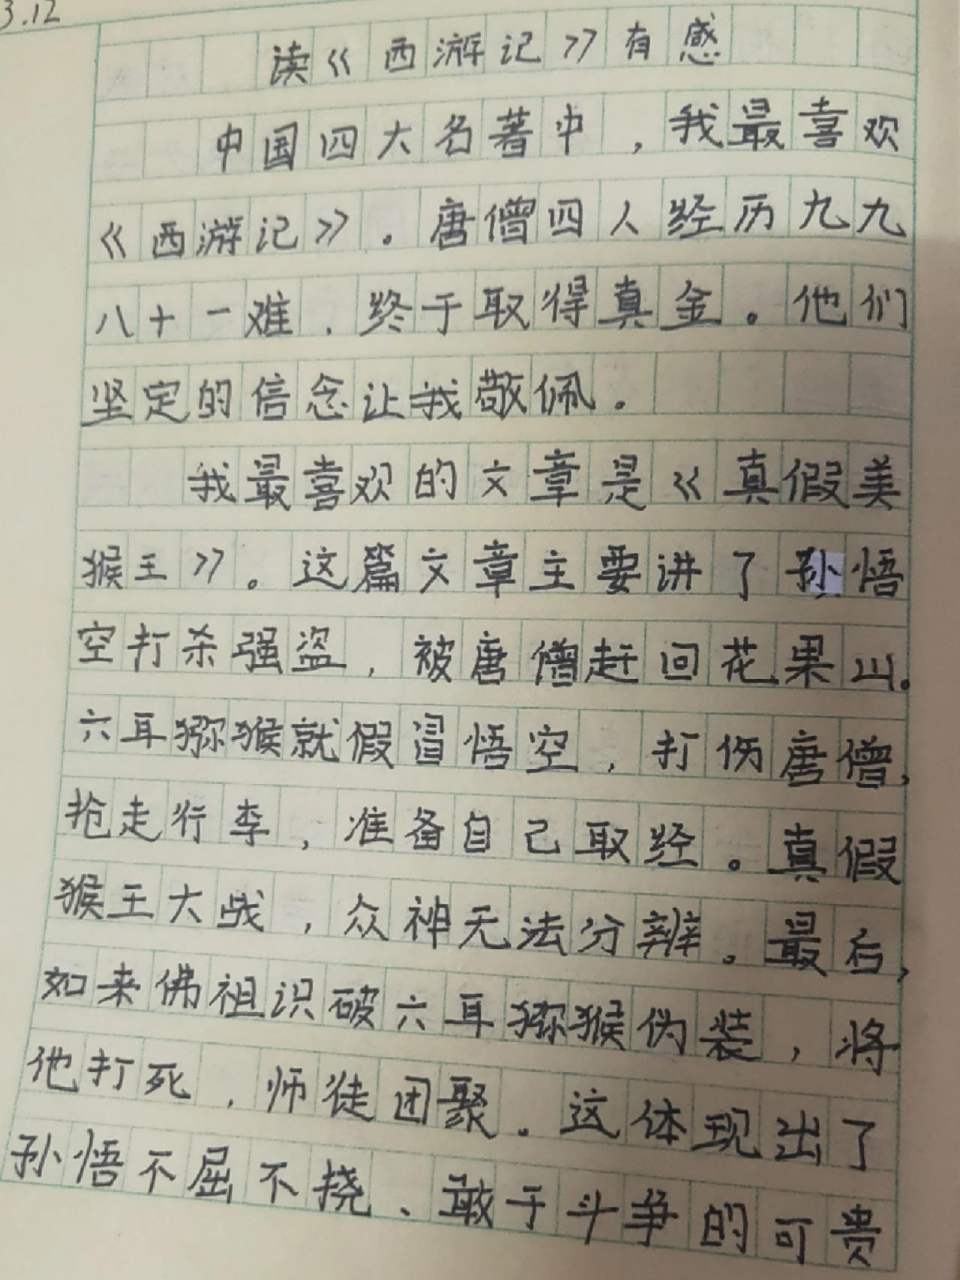 3.12
读《西游记》有感
中国四大名著中，我最喜欢
《西游记》。唐僧四人经历九九
八十一难，终于取得真金。他们
坚定的信念让我敬佩。
我最喜欢的文章是《真假美
猴王》。这篇文章主要讲了孙悟
空打杀强盗，被唐僧赶回花果山。
六耳猕猴就假冒悟空，打伤唐僧，
抢走行李，准备自己取经。真假
猴王大战，众神无法分辨。最后，
如来佛祖识破六耳猕猴伪装，将
他打死，师徒团聚。这体现出了
孙悟不屈不挠、敢于斗争的可贵